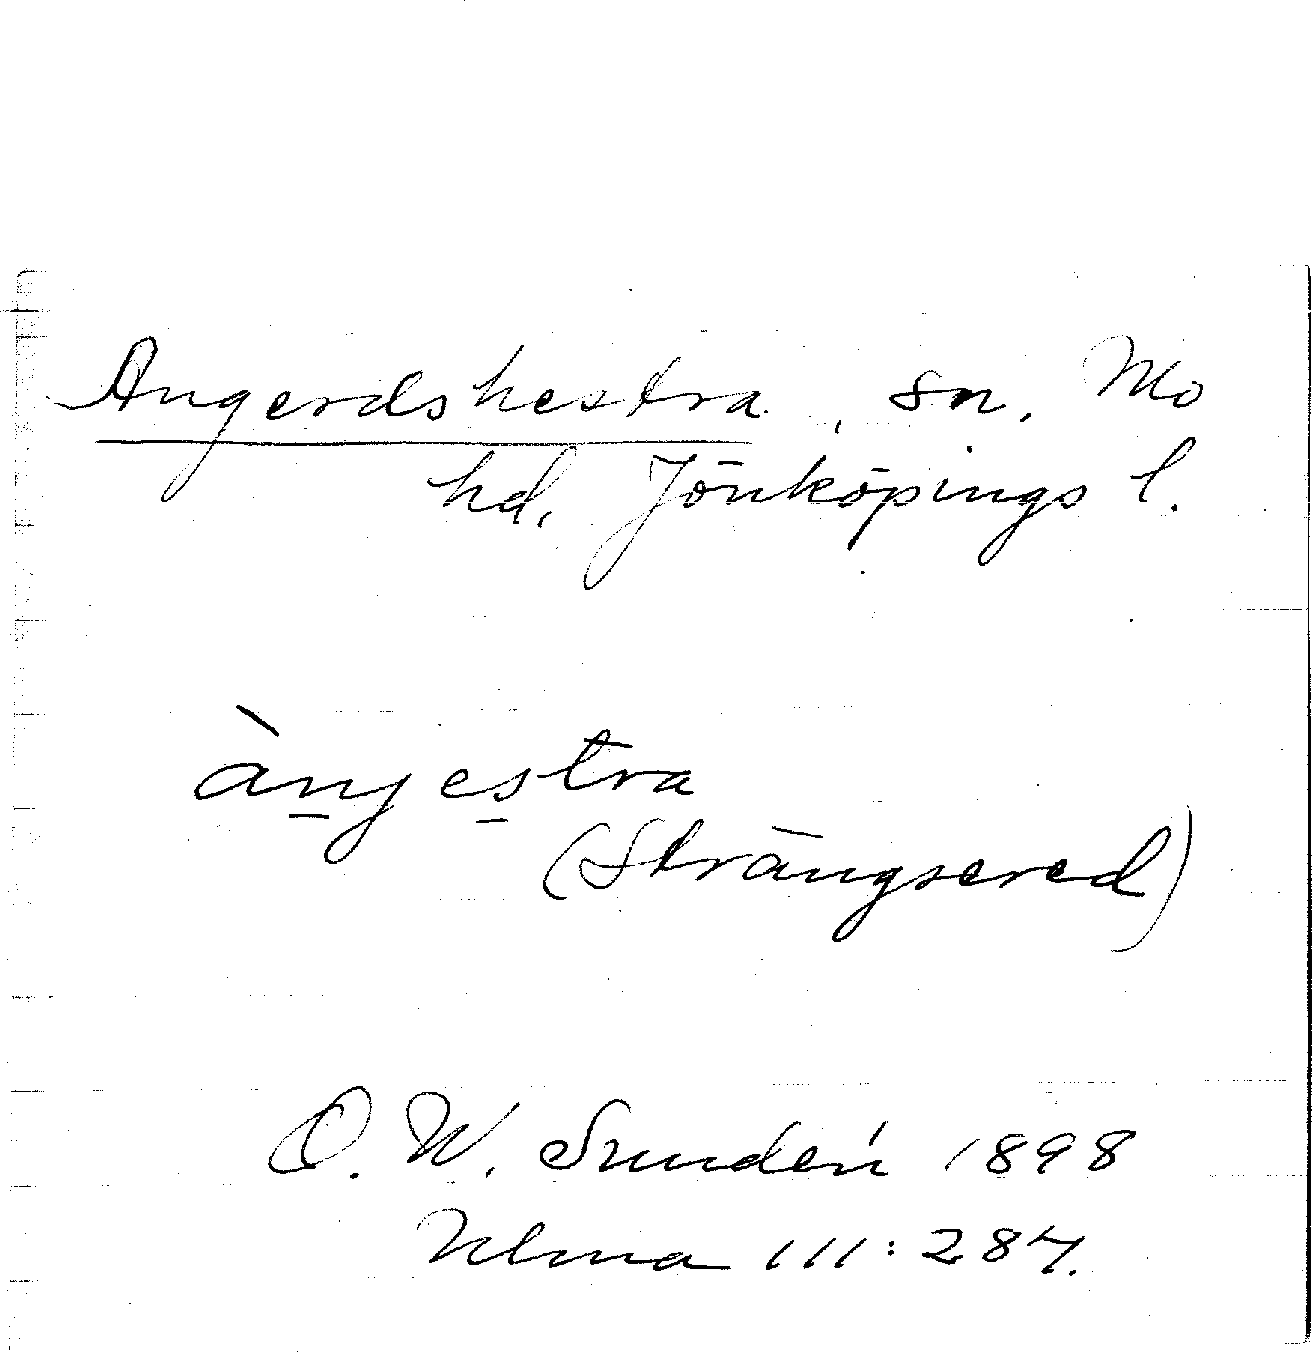 Angerdshestra, sn, Mo
hd, Jönköpings l.
ànjestra
(Strängsered)
O. W. Sundén 1898
Ulma 111:287.